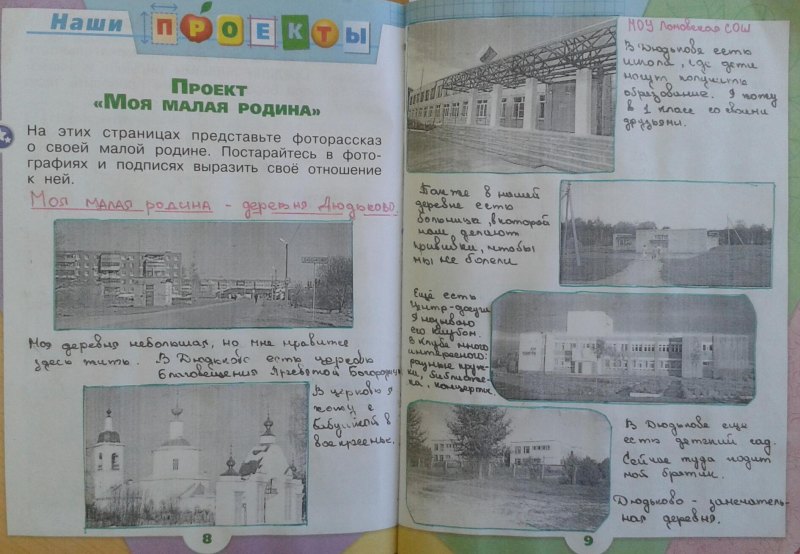 Наши ПРОЕКТЫ
ПРОЕКТ
«МОЯ МАЛАЯ РОДИНА»
На этих страницах представьте фоторассказ
о своей малой родине. Постарайтесь в фото-
графиях и подписях выразить своё отношение
к ней.
Моя малая родина - деревня Дюдьково.
Моя деревня небольшая, но мне нравится
здесь жить. В Дюдькове есть церковь
Благовещения Пресвятой Богородицы
В церковь я
хожу с
бабушкой в
воскресенье.
8
МОУ Ломовская СОШ
В Дюдькове есть
школа, где дети
могут получить
образование. Я хожу
в 1 класс со своими
друзьями.
Также в нашей
деревне есть
больница, в которой
нам делают
прививки, чтобы
мы не болели
Ещё есть
Центр-досуга
Я называю
его клубом.
В клубе много
интересного:
разные круж-
ки, библиоте-
ка, концерты.
В Дюдькове еще
есть детский сад.
Сейчас туда ходит
мой братик.
Дюдьково - замечатель-
ная деревня.
9